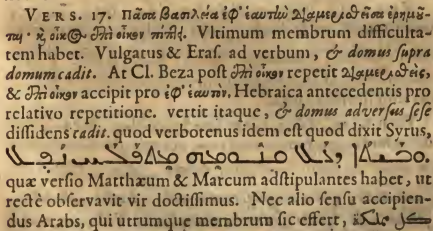 VERS. 17. Πᾶσα βασιλεία ἐφ' ἑαυτὴν διαμερισθεῖσα ἐρημοῦ-
ται· κ̀ οἶκος ἐπὶ οἶκον πίπτει. Vltimum membrum difficulta-
tem habet. Vulgatus & Eras. ad verbum, & domus supra
domum cadit. At Cl. Beza post ἐπὶ οἶκον repetit διαμερισθείς,
& ἐπὶ οἶκον accipit pro ἐφ' ἑαυτὸν, Hebraica antecedentis pro
relativo repetitione. vertit itaque, & domus adversus sese
dissidens cadit. quod verbotenus idem est quod dixit Syrus,
ܘܒܝܬܐ ܕܥܠ ܩܢܘܡܗ ܡܬܦܠܓ ܢܦܠ
quæ versio Matthæum & Marcum adstipulantes habet, ut
rectè observavit vir doctissimus. Nec alio sensu accipien-
dus Arabs, qui utrumque membrum sic effert, كل مملكة